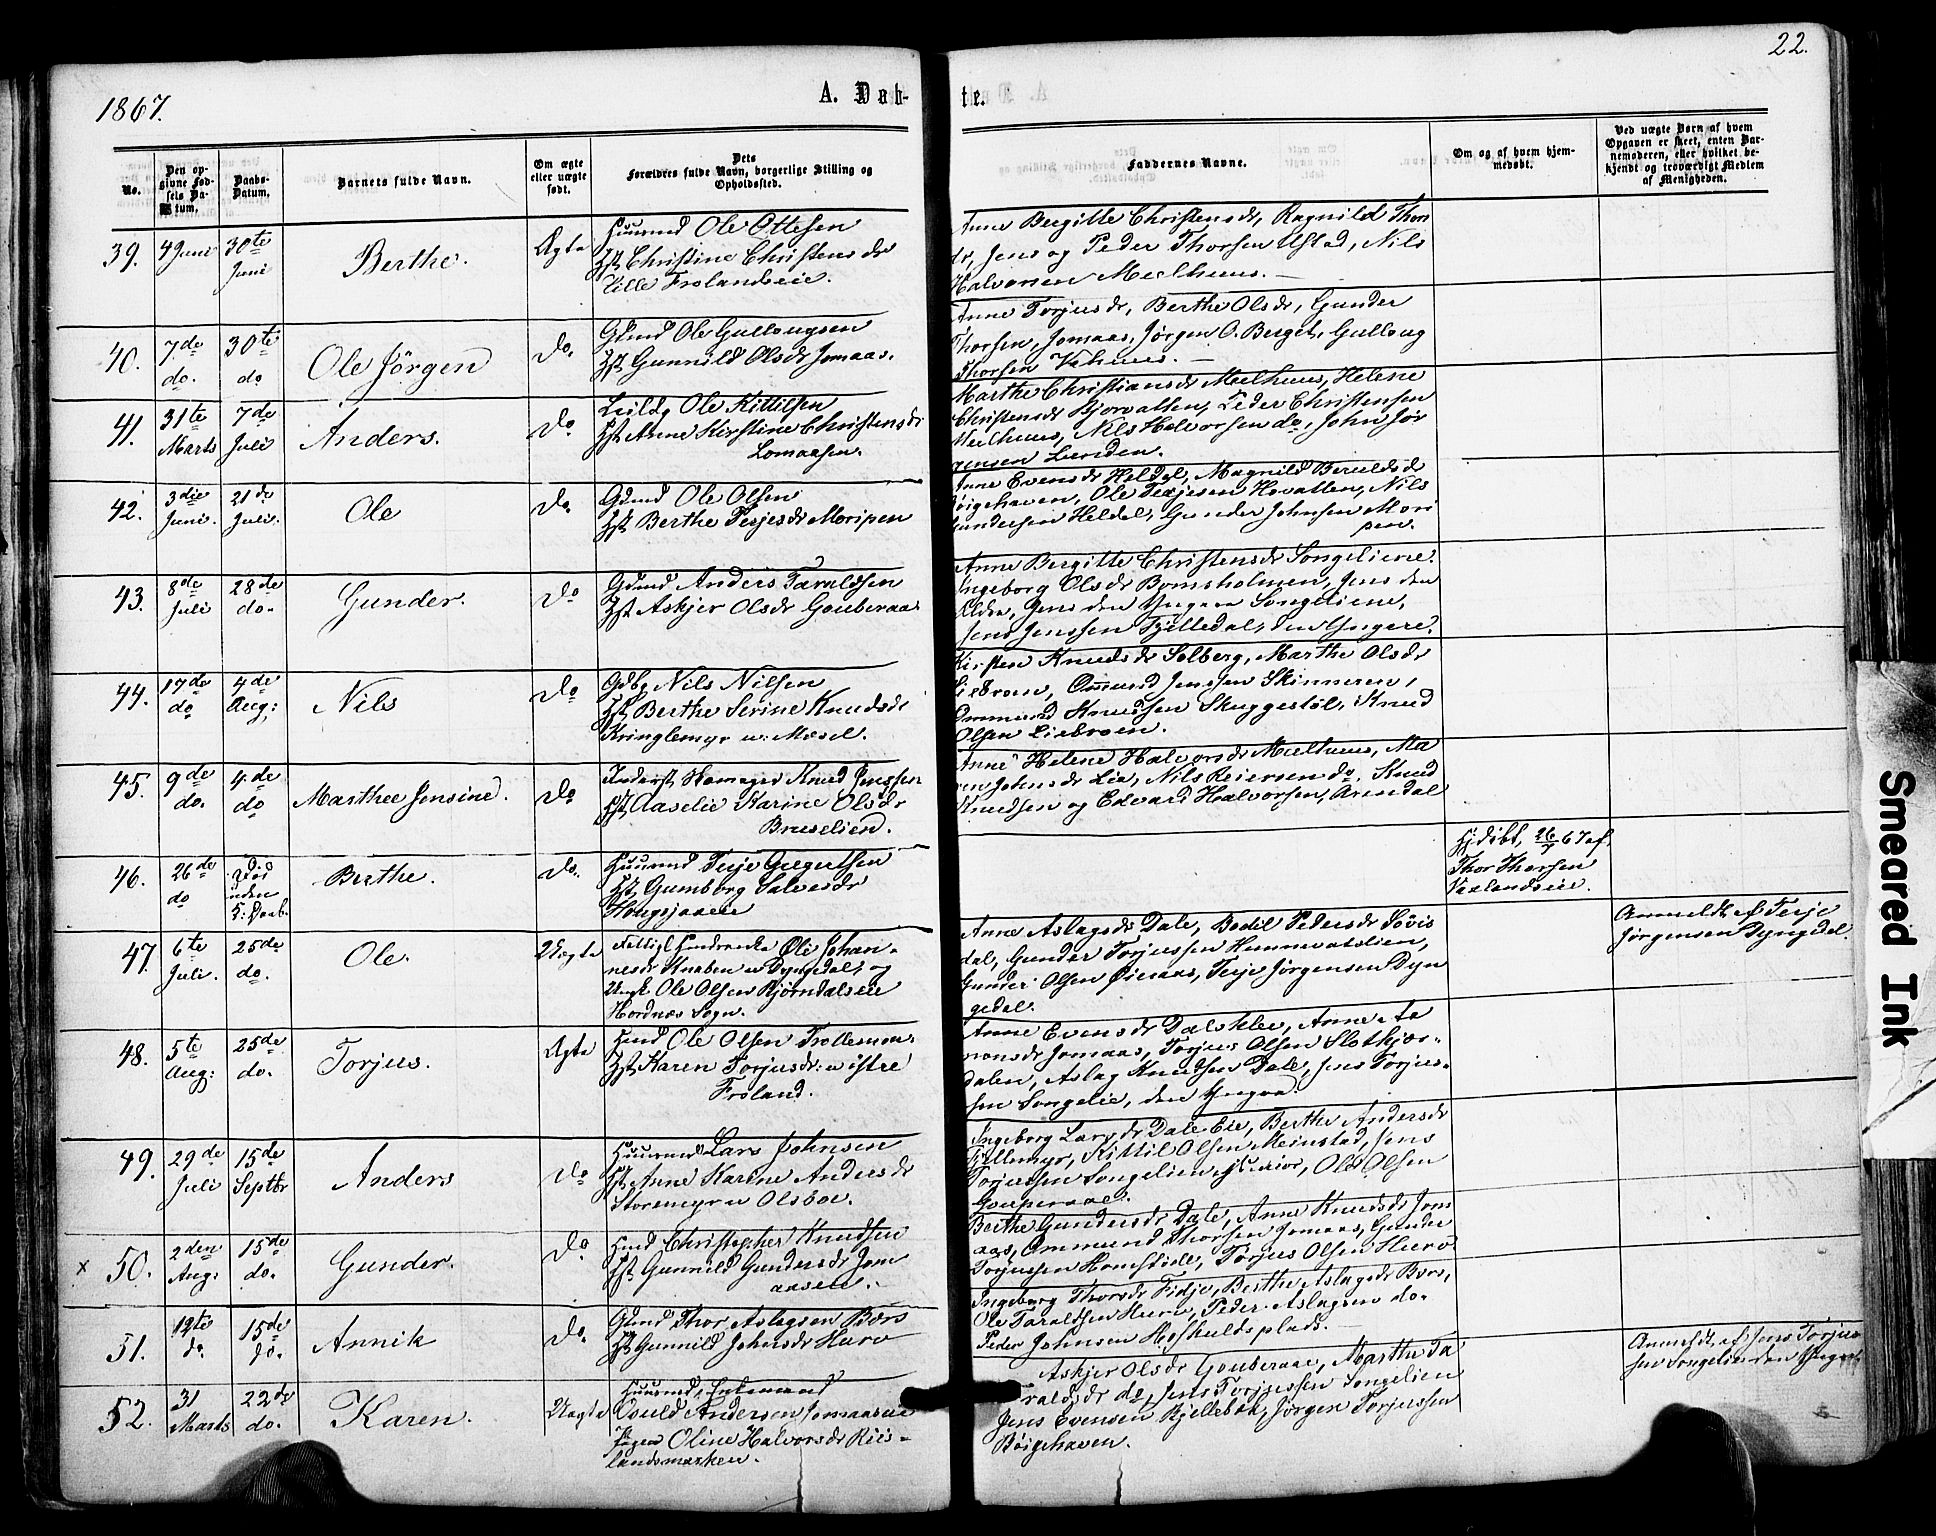 1867.
A. Døb-
te.
22.
No.
Den op-
givne Fød-
sels Da-
tum.
Daabs-
Datum.
Barnets fulde Navn.
Om ægte
eller uægte
født.
Dets
Forældres fulde Navn, borgerlige Stilling og
Opholdssted.
Faddernes Navne.
Om og af hvem hjem-
medøbt.
Ved uægte Børn af hvem
Opgaven er skeet, enten Bar-
nemoderen, eller hvilket be-
kjendt og troværdigt Medlem
af Menigheden.
39. 4 Juni 30te
Juni
Berthe.
Ægte
Huusmd Ole Ottesen
Hst Christine Christensdr
Lille Frolandseie.
Anne Bergitte Christensdr, Ragnild Thors
dr, Jens og Peder Thorsen Ustad, Nils
Halvorsen Mælhuus.
40. 7de
do. 30te
do
Ole Jörgen
do.
Gdmd Ole Gullougsen
Hst Gunnild Olsdr Jomaas.
Anne Torjusdr, Berthe Olsdr, Gunder
Thorsen, Jomaas, Jørgen O. Berget, Gulloug
Thorsen Vehuus.
41. 31te
Marts 7de
Juli
Anders.
do
Leildg Ole Kittilsen
Hst Anne Kirstine Christensdr
Lomaasen.
Marthe Christiansdr Mælhuus, Helene
Christensdr Bjorvatten, Peder Christensen
Mælhuus, Nils Halvorsen do, John Jør
gensen Lunden.
42. 3die
Juni. 21de
Juli.
Ole
do.
Gdmd Ole Olsen
Hst Berthe Terjesdr Moripen
Anne Evensdr Heldal, Magnild Beruldsdr
Bøigehaven, Ole Terjesen Hovatten, Nils
Gundersen Heldal, Gunder Johnsen Mori
pen.
43. 8de
Juli 28de
do.
Gunder.
do
Gdmd Anders Taraldsen
Hst Askjer Olsdr Gouberaas
Anne Bergitte Christensdr Songeliene
Ingeborg Olsdr Bomsholmen, Jens den
Ældre, Jens den Yngere Songeliene,
Jens Jenssen Fjelledal, den Yngere.
44. 17de
do 4de
Aug:
Nils
do
Gdbg Nils Nilsen
Hst Berthe Serine Knudsdr
Kringlemyr u: Mæsel.
Kirsten Knudsdr Solberg, Marthe Olsdr
Liebroen, Omund Jenssen Skinneren,
Ommund Knudsen Skuggestøl, Knud
Olsen Liebroen.
45. 9de
do. 4de
do
Marthee Jensine.
do
Inderst Knud Jenssen
Hst Aaselie Karine Olsdr
Bruselien.
Anne Helene Halvorsdr Mælhuus, Ma
ren Johnsdr Lia, Nils Reiersen do. Knud
Knudsen og Edvard Halvorsen, Arendal
46. 26de
do
Død
uden
Daab.
Berthe.
do.
Huusmd Terje Gregertsen
Hst Gumborg Salvesdr
Hjdøbt, 26/7 67 af
Thor Thorsen
47. 6te
Juli. 25de
do.
Ole.
Uægte
Ole Johan-
nesdr Knaben u Dyngedal, og
Ungk Ole Olsen Bjørndalseie
Hordnæs Sogn.
Anne Aslagsdr Dale, Bodil Pedersdr Løvis
dal, Gunder Torjussen Hummevatslien,
Gunder Olsen Øienaas, Terje Jørgensen Dyn
gedal.
Anmeldt af Terje
Jörgensen Dyngedal.
48. 5te
Aug: 25de
do.
Torjus.
Ægte
Hmd Ole Olsen Trollemoen
Hst Karen Torjusdr: u: östre
Froland.
Anne Evensdr Dalsklev, Anne Aa
ronsdr Jomaas, Torjus Olsen Slotkjær-
dalen, Aslag Knudsen Dale, Jens Torjus-
sen Songelie, den Yngre.
49. 29de
Juli 15de
Septbr
Anders
do
Huusmd Lars Johnsen
Hst Anne Karine Andersdr
Storemyr u Olsboe.
Ingeborg Larsdr Dale Eie, Berthe Andersdr
Fjellemyr, Kittil Olsen Meinstad, Jens
Torjussen Songelien Junior, Ole Olsen
Gouperaas.
x 50. 2den
Aug: 15de
do.
Gunder.
do
Hmd Christopher Knudsen
Hst Gunnild Gundersdr Jom
aasen.
Berthe Gundersdr Dale, Anne Knudsdr Jom
aas, Ommund Thorsen Jomaas, Gunder
Torjussen Homsdale, Torjus Olsen Hurv
51. 12te
do. 15de
do.
Annik
do.
Gdmd Thor Aslagsen Børs
Hst Gunnild Johnsdr Hurv
Ingeborg Thorsdr Fidje, Berthe Aslagsdr Børs,
Ole Taraldsen Hurv, Peder Aslagsen do.
Peder Johnsen Roskuldsplads.
52. 31
Marts 22de
do.
Karen.
Uægte
Huusmd, Enkemand
Osuld Andersen Jomaaseie
Pigen Oline Halvorsdr Riis-
landsmarken.
Askjer Olsdr Gouberaas, Marthe Ta
raldsdr do, Jens Torjussen Songelien
Jens Evensen Kjellebæk, Jørgen Torjussen
Bøigehaven.
Anmeldt af Jens Torjus
sen Songelien den Yngre
Smeared Ink